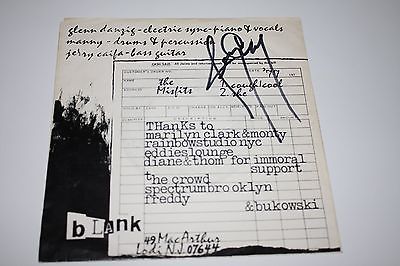 glenn danzig-electric sync-piano & vocals
manny - drums & percussion
jerry caifa-bass guitar
CASH SALE
the
Misfits
1. cough/cool
2. she
THanKs to
marilyn clark & monty
rainbowstudio nyc
eddieslounge
diane & thom for immoral
support
the crowd
spectrumbrooklyn
freddy
& bukowski
bLANK
49 MacArthur
Lodi N.J. 07644